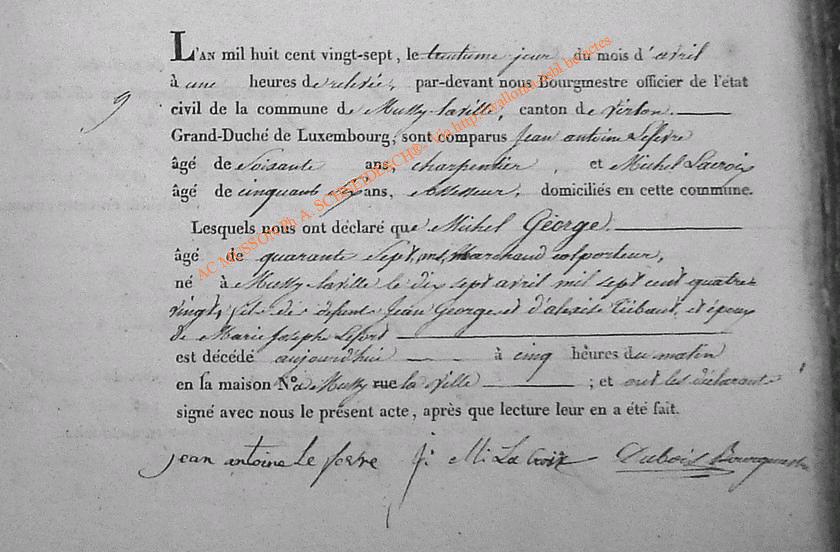 L'AN mil huit cent vingt-sept, le trentieme jour du mois d'avril
à une heures de relevée, par-devant nous Bourgmestre officier de l'état
civil de la commune de Mussy-laville, canton de Virton.
9
Grand-Duché de Luxembourg, sont comparus Jean antoine Lefevre
âgé de Soisante ans, charpentier, et Michel Lacroix
âgé de cinquante ans, Assesseur, domiciliés en cette commune.
Lesquels nous ont déclaré que Michel Géorge.
âgé de quarante Sept, ans, Marchand colporteur,
né à Mussy-laville le dix sept avril mil sept cent quatre
vingt, fils de défunt Jean George et d'alexise Thibaut, et époux
de Marie Joseph Lefort
est décédé aujourd'hui à cinq heures du matin
en sa maison N.° a Mussy rue la ville ; et ont les déclarants
signé avec nous le présent acte, après que lecture leur en a été fait.
jean antoine Le fevre J. M. La Croix Dubois Bourgmestre
AC MUSSON Ph A. SCHNEIDESCH®